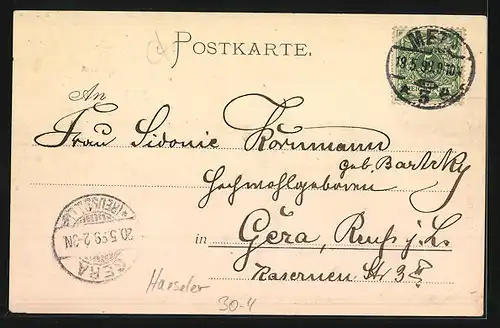 POSTKARTE.
METZ
19.5.99.9-10V
An
Frau Sidonie Kornmann
geb. Bartzky
Hochwohlgeboren
in Gera, Reuß j. L.
Kasernen Str 3 II
GERA
20.5.99.2-3N
(REUSS J.L.)
Haeseler
30-4